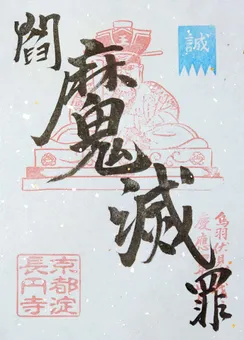 誠
閻魔滅罪
鳥羽伏見
慶應
京都淀
長円寺
王